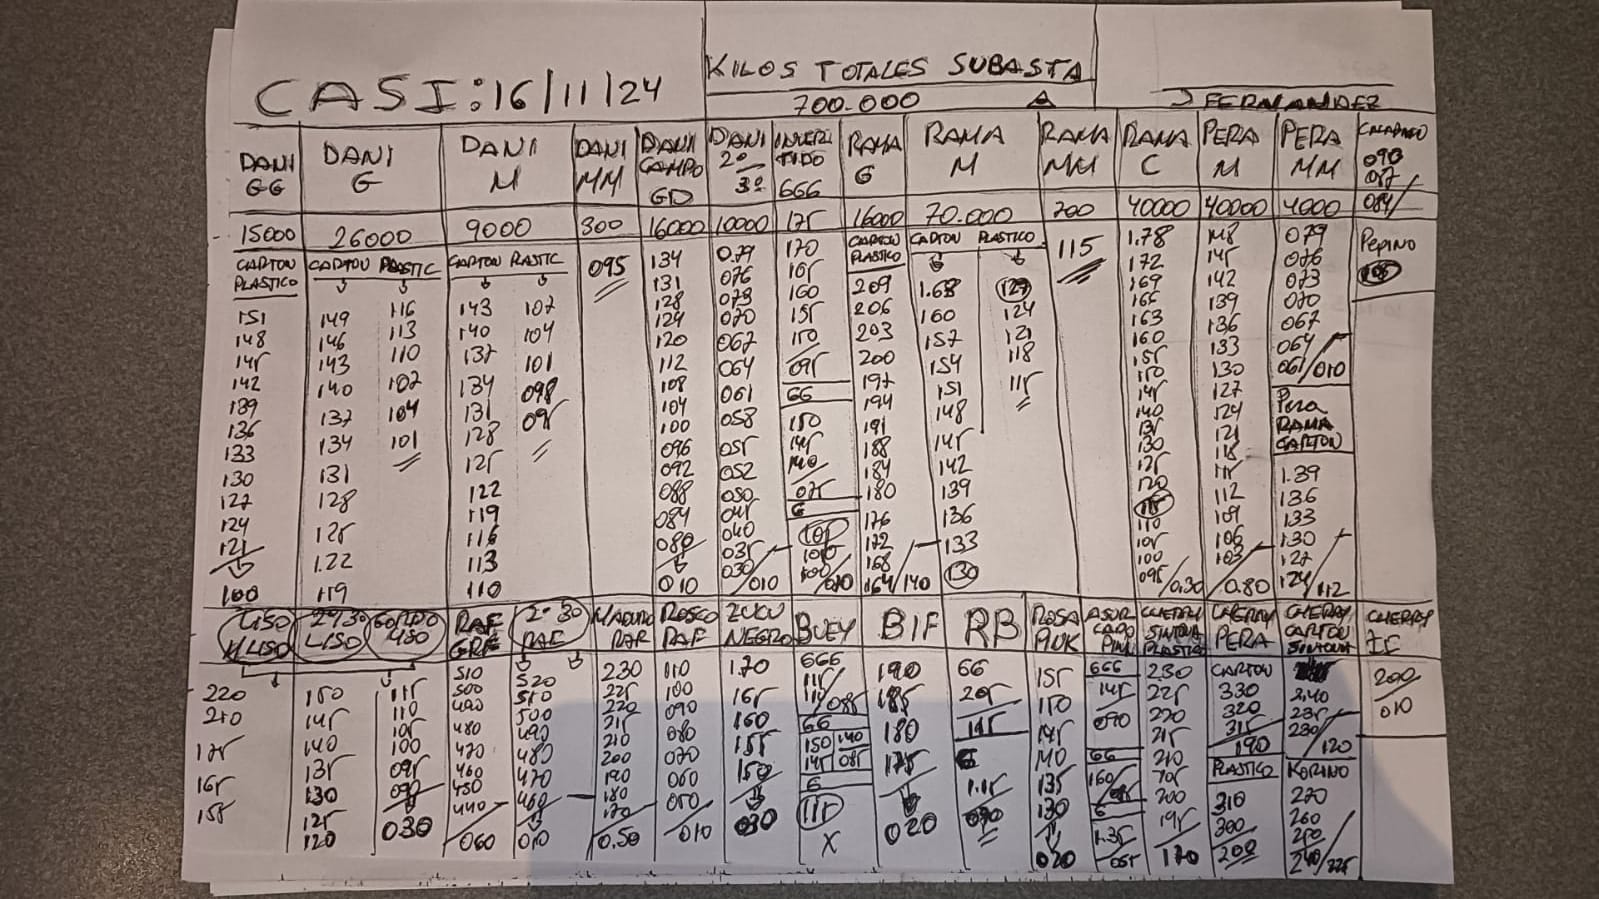 CASI: 16/11/24
KILOS TOTALES SUBASTA
700.000
J FERNANDEZ
DANI GG
DANI G
DANI M
DANI MM
DANI CAMPO GD
DANI 2º 3º
INVERTIDO 666
RAMA G
RAMA M
RAMA MM
RAMA C
PERA M
PERA MM
CALABACO 090 087 084/
15000 26000 9000 300 16000 10000 175 16000 70.000 200 40000 40000 4000
CARTON PLASTICO
151
148
145
142
139
136
133
130
127
124
121
100
CARTON PLASTIC
149 116
146 113
143 110
140 107
137 104
134 101
131
128
125
1.22
119
CARTON PLASTIC
143 107
140 104
137 101
134 098
131 095
128
125
122
119
116
113
110
095
134
131
128
124
120
112
108
104
100
096
092
088
084
080
010
0.79
076
073
070
067
064
061
058
055
052
050
045
040
035
030/010
170
165
160
155
150
095
66
150
145
140
075
6
105
100/010
CARTON PLASTICO
209
206
203
200
197
194
191
188
184
180
176
172
168
164/140
CARTON PLASTICO
1.63 127
160 124
157 121
154 118
151 115
148
145
142
139
136
133
130
115
1.78
172
169
166
163
160
155
150
145
140
135
130
125
120
115
110
105
100
095/0.30
148
145
142
139
136
133
130
127
124
121
118
115
112
109
106
103
0.80
079
076
073
070
067
064
061/010
PERA RAMA CARTON
1.39
136
133
130
127
124/112
PEPINO
LISO
220
210
175
165
155
2º 30 LISO
150
145
140
135
130
125
120
GORDO 480
115
110
105
100
095
090
030
RAF GRE
510
500
490
480
470
460
450
440
060
2º 30 RAF
520
510
500
490
480
470
460
010
MADURO RAF
230
225
220
215
210
200
190
180
170
0.50
ROSCO RAF
110
100
090
080
070
060
050
010
ZUCU NEGRO
1.70
165
160
155
150
030
BUEY
666
115
110/085
66
150 140
145 085
6
115
X
BIF
190
185
180
175
020
RB
66
205
145
6
1.15
090
ROSA PINK
155
150
145
140
135
130
020
ASURCADO PINK
666
145
070
66
160
6
1.35
055
CHERRY SINTONIA PLASTICO
230
225
220
215
210
205
200
195
170
CHERRY PERA
CARTON
330
320
315
190
PLASTICO
310
300
200
CHERRY CARTON SINTONIA
240
235
230
120
KORINO
270
260
250
240/225
CHERRY IF
200
010